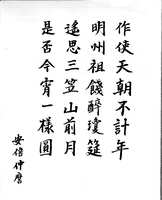 作使天朝不計年
明州祖餞醉瓊筵
遙思三笠山前月
是否今宵一樣圓
安倍仲麿